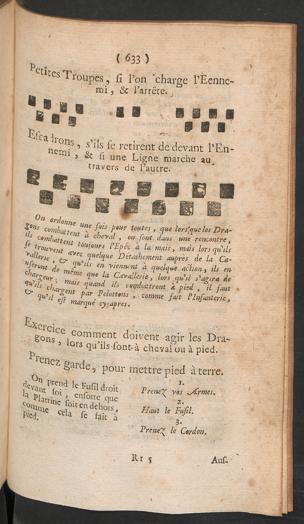 ( 633 )
Petites Troupes, si l'on charge l'Eenne-
mi, & l'arrête.
Escadrons, s'ils se retirent de devant l'En-
nemi, & si une Ligne marche au
travers de l'autre.
On ordonne une fois pour toutes, que lorsque les Dra-
gons combattent à cheval, ou sont dans une rencontre,
ils combattent toujours l'Epée à la main, mais lors qu'ils
se trouvent avec quelque Détachement auprès de la Ca-
vallerie, & qu'ils en viennent à quelque action, ils en
useront de même que la Cavallerie, lors qu'il s'agira de
charger, mais quand ils combattront à pied, il faut
qu'ils chargent par Pelottons, comme fait l'Infanterie,
& qu'il est marqué cy-apres.
Exercice comment doivent agir les Dra-
gons, lors qu'ils sont à cheval ou à pied.
Prenez garde, pour mettre pied à terre.
On prend le Fusil droit
devant soi, ensorte que
la Plattine soit en dehors,
comme cela se fait à
pied.
1.
Prenez vos Armes.
2.
Haut le Fusil.
3.
Prenez le Cordon.
Rr 5
Aus.